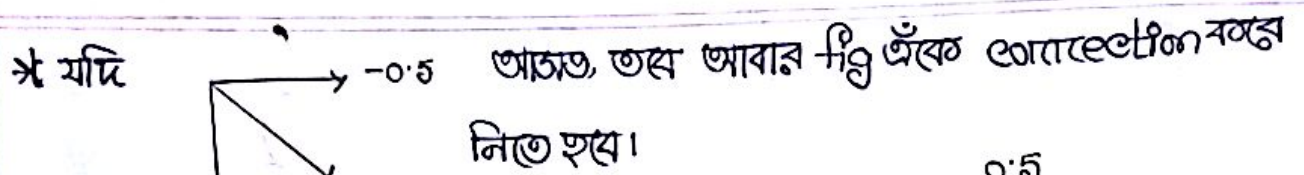 * যদি -0.5 আসত, তবে আবার fig এঁকে correction করে
নিতে হবে।
0.5